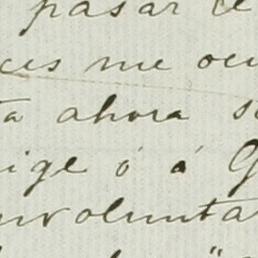 pasar e
ces me ocu
ta ahora s
ige ó á G
nvolunta